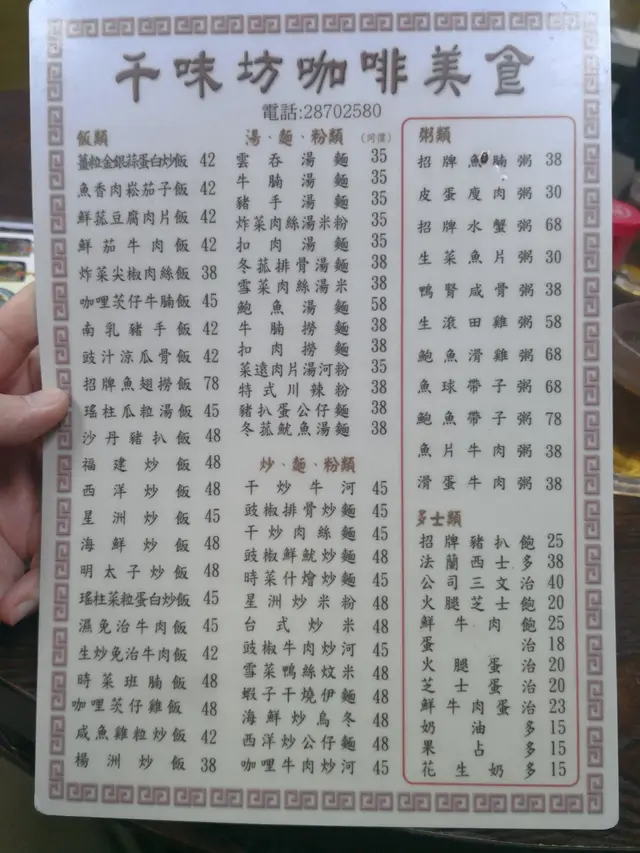 千味坊咖啡美食
電話:28702580
飯類
薑粒金銀蒜蛋白炒飯 42
魚香肉崧茄子飯 42
鮮菰豆腐肉片飯 42
鮮茄牛肉飯 42
炸菜尖椒肉絲飯 38
咖哩茨仔牛腩飯 45
南乳豬手飯 42
豉汁涼瓜骨飯 42
招牌魚翅撈飯 78
瑤柱瓜粒湯飯 45
沙丹豬扒飯 48
福建炒飯 48
西洋炒飯 48
星洲炒飯 45
海鮮炒飯 48
明太子炒飯 48
瑤柱菜粒蛋白炒飯 45
濕免治牛肉飯 45
生炒免治牛肉飯 42
時菜班腩飯 48
咖哩茨仔雞飯 48
咸魚雞粒炒飯 42
楊洲炒飯 38
湯、麵、粉類 (同價)
雲吞湯麵 35
牛腩湯麵 35
豬手湯麵 35
炸菜肉絲湯米粉 35
扣肉湯麵 35
冬菰排骨湯麵 38
雪菜肉絲湯米 38
鮑魚湯麵 58
牛腩撈麵 38
扣肉撈麵 38
菜遠肉片湯河粉 35
特式川辣粉 38
豬扒蛋公仔麵 38
冬菰魷魚湯麵 38
炒、麵、粉類
干炒牛河 45
豉椒排骨炒麵 45
干炒肉絲麵 45
豉椒鮮魷炒麵 48
時菜什燴炒麵 45
星洲炒米粉 48
台式炒米 48
豉椒牛肉炒河 45
雪菜鴨絲炆米 48
蝦子干燒伊麵 48
海鮮炒烏冬 48
西洋炒公仔麵 48
咖哩牛肉炒河 45
粥類
招牌魚腩粥 38
皮蛋廋肉粥 30
招牌水蟹粥 68
生菜魚片粥 30
鴨腎咸骨粥 38
生滾田雞粥 58
鮑魚滑雞粥 68
魚球帶子粥 68
鮑魚帶子粥 78
魚片牛肉粥 38
滑蛋牛肉粥 38
多士類
招牌豬扒飽 25
法蘭西士多 38
公司三文治 40
火腿芝士飽 20
鮮牛肉飽 25
蛋治 18
火腿蛋治 20
芝士蛋治 20
鮮牛肉蛋治 23
奶油多 15
果占多 15
花生奶多 15